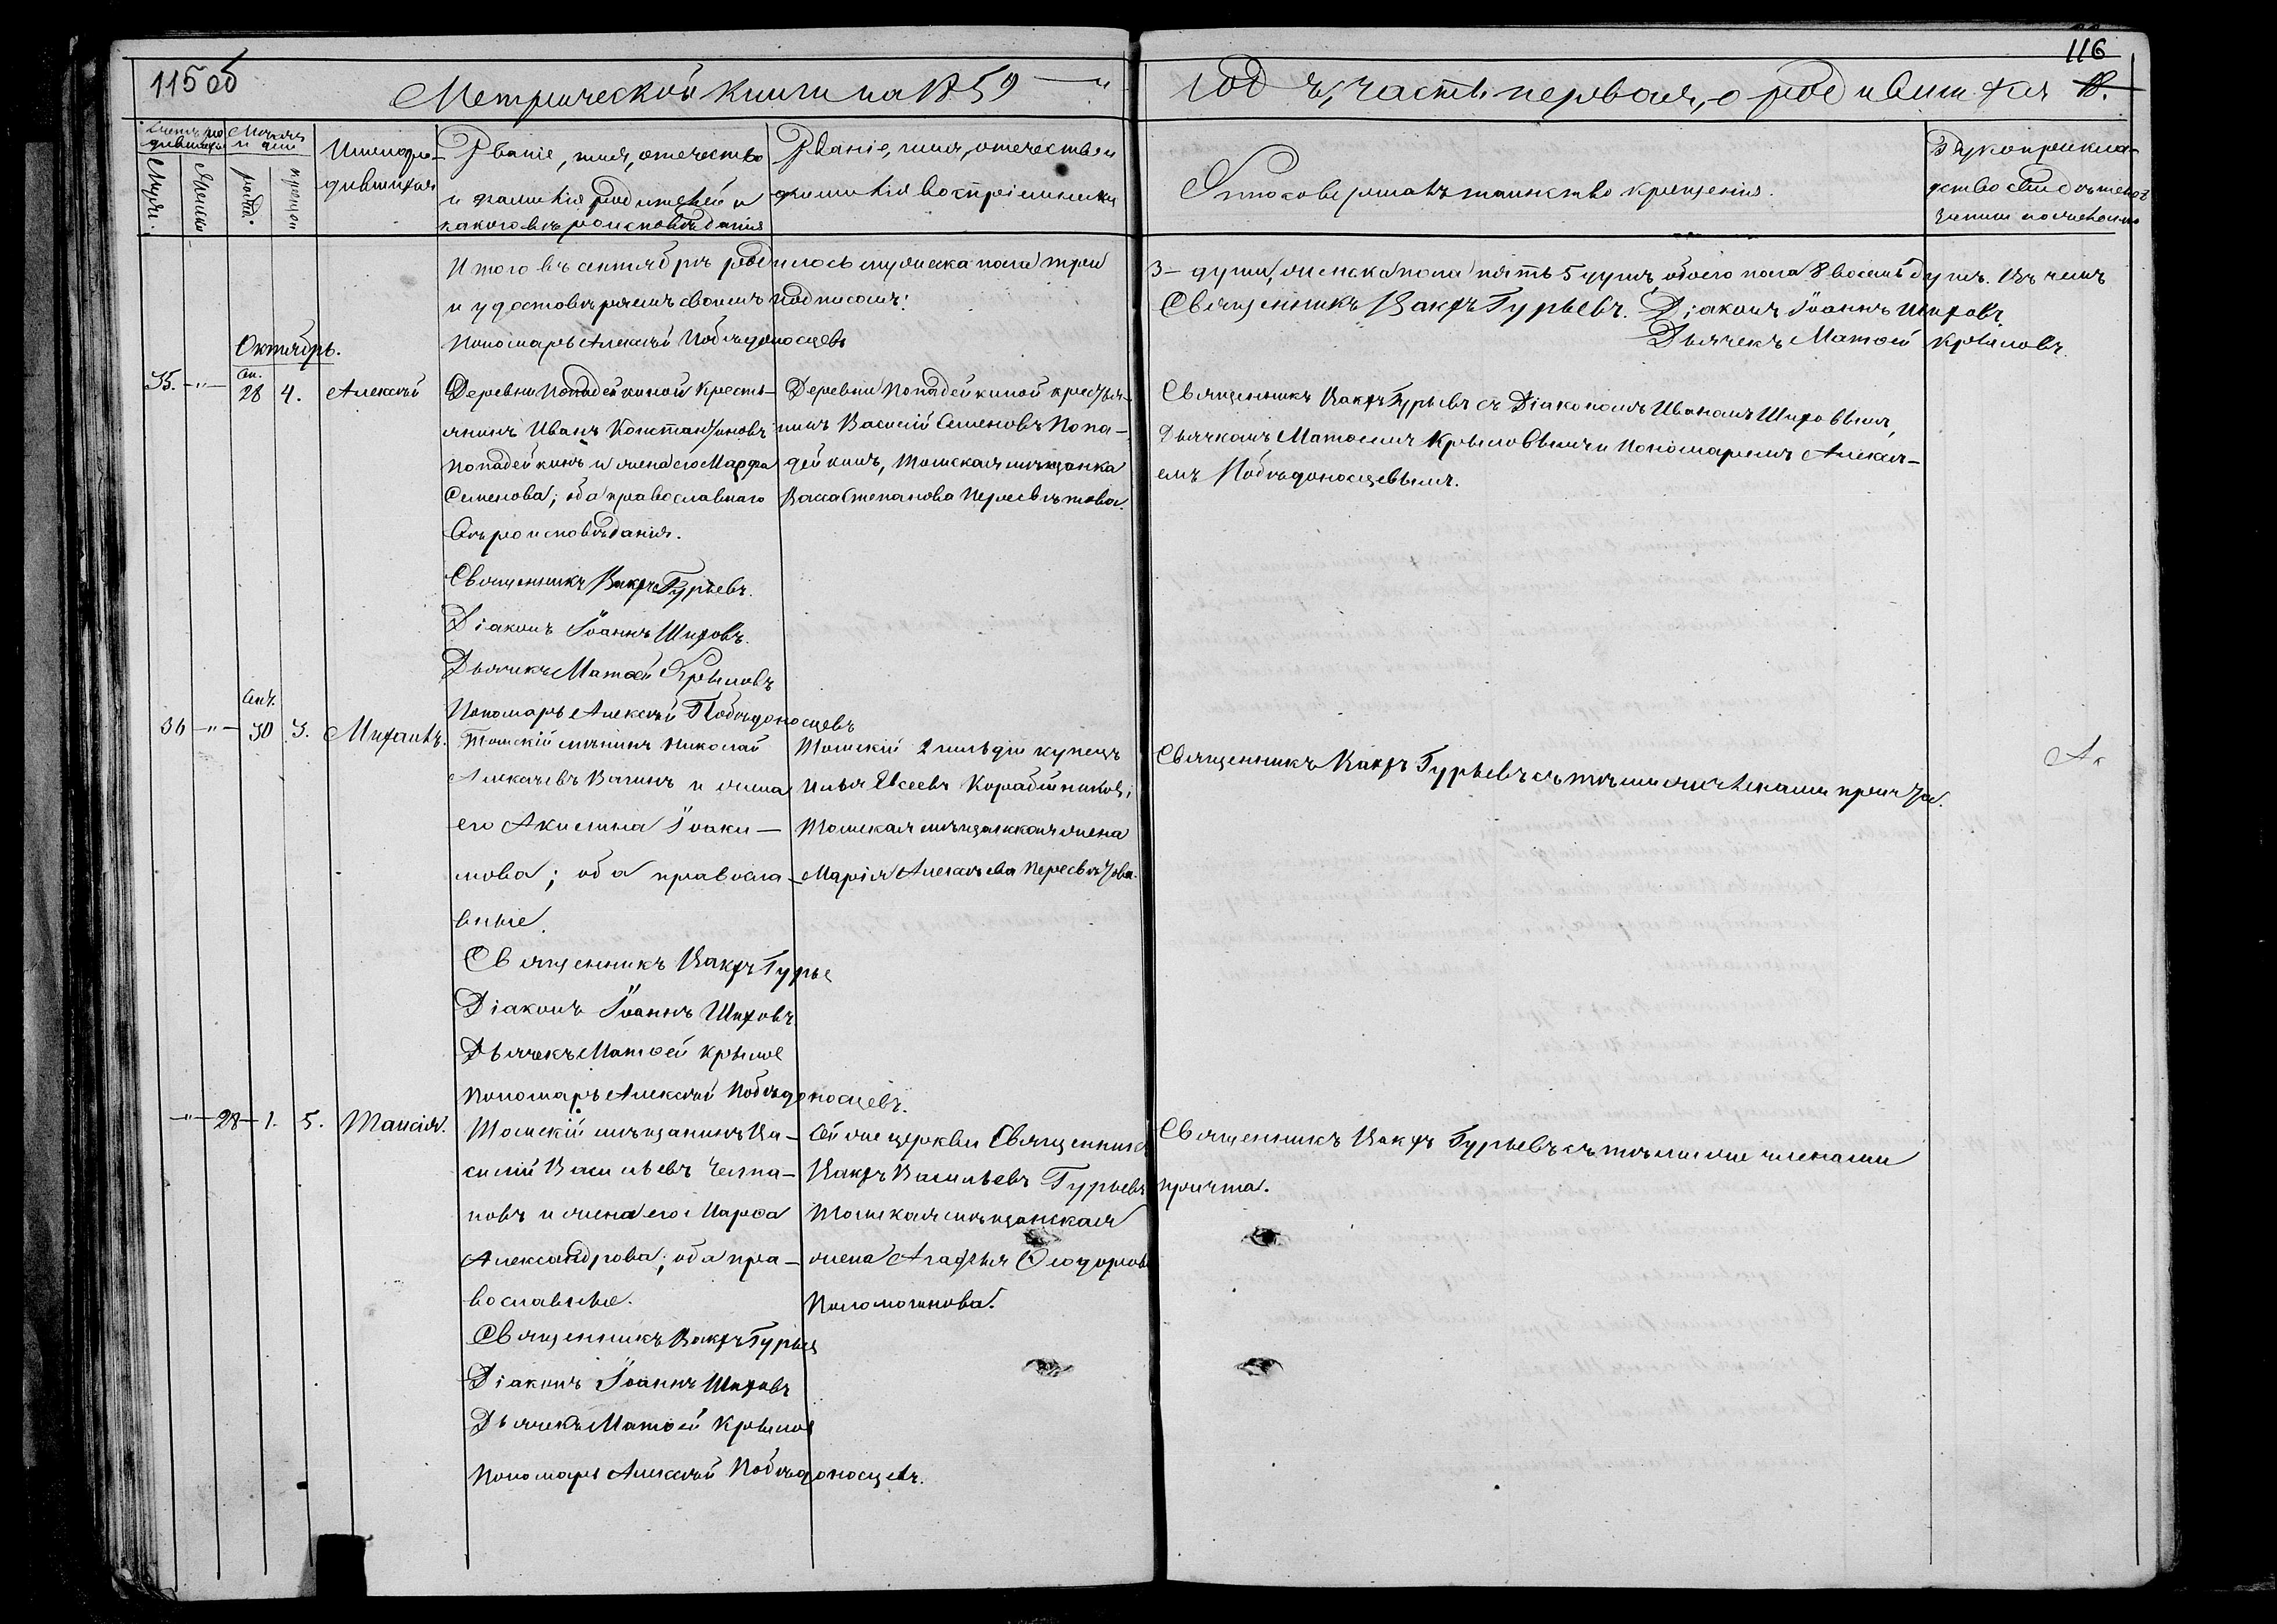 115 об
116
Метрической книги на 1859 — " годъ, часть первая, о родившихся
Счетъ родившихся
Мѣсяцъ и дни
Имена родившихся
Званіе, имя, отечество
и фамилія родителей и
какого вѣроисповѣданія
Званіе, имя, отечество и
фамилія воспріемники
Кто совершалъ таинство крещенія.
Рукоприкла-
дство свидѣтелей
записи по желанію
Итого въ сентябрѣ родилось мужеска пола три 3 – души, женска пола пять 5 душъ, обоего пола 8 восемь душъ. Въ чемъ
и удостовѣряемъ своимъ подписомъ: Священникъ Вакхъ Гурьевъ. Діаконъ Іоаннъ Шиховъ.
Пономарь Алексѣй Побѣдоносцевъ Дьячекъ Матѳей Крыловъ.
Октябрь.
35. — " — Сен. 28 4. Алексѣй
Деревни Попадейкиной кресть-
янинъ Иванъ Константиновъ
Попадейкинъ и жена его Марфа
Семенова; оба православнаго
вѣроисповѣданія.
Священникъ Вакхъ Гурьевъ.
Діаконъ Іоаннъ Шиховъ.
Дьячекъ Матѳей Крыловъ
Пономарь Алексѣй Побѣдоносцевъ
Деревни Попадейкиной крестья-
нинъ Василій Семеновъ Попа-
дейкинъ, Томская мѣщанка
Васса Степанова Пересвѣтова.
Священникъ Вакхъ Гурьевъ съ Діакономъ Иваномъ Шиховымъ,
Дьячкомъ Матѳеемъ Крыловымъ и Пономаремъ Алексѣ-
емъ Побѣдоносцевымъ.
36 — " — Сен. 30 3. Михаилъ.
Томскій мѣщанинъ Николай
Алексѣевъ Вагинъ и жена
его Акилина Іоаки-
мова; оба правосла-
вные.
Священникъ Вакхъ Гурье
Діаконъ Іоаннъ Шиховъ.
Дьячекъ Матѳей Крылов
Пономарь Алексѣй Побѣдоносцевъ.
Томскій 2 гильдіи купецъ
Илья Евсеевъ Корабейниковъ;
Томская мѣщанская жена
Марія Алексѣева Пересвѣтова.
Священникъ Вакхъ Гурьевъ съ тѣми же членами причта.
— " — 28 — 1. 5. Таисія.
Томскій мѣщанинъ Ва-
силій Васильевъ Челпа-
новъ и жена его Марѳа
Александрова; оба пра-
вославные.
Священникъ Вакхъ Гурьев
Діаконъ Іоаннъ Шиховъ
Дьячекъ Матѳей Крылов
Пономарь Алексѣй Побѣдоносцевъ.
Сей же церкви Священникъ
Вакхъ Васильевъ Гурьевъ
Томская мѣщанская
жена Агафья Ѳеодоров
Поломошнова.
Священникъ Вакхъ Гурьевъ съ тѣми же членами
причта.